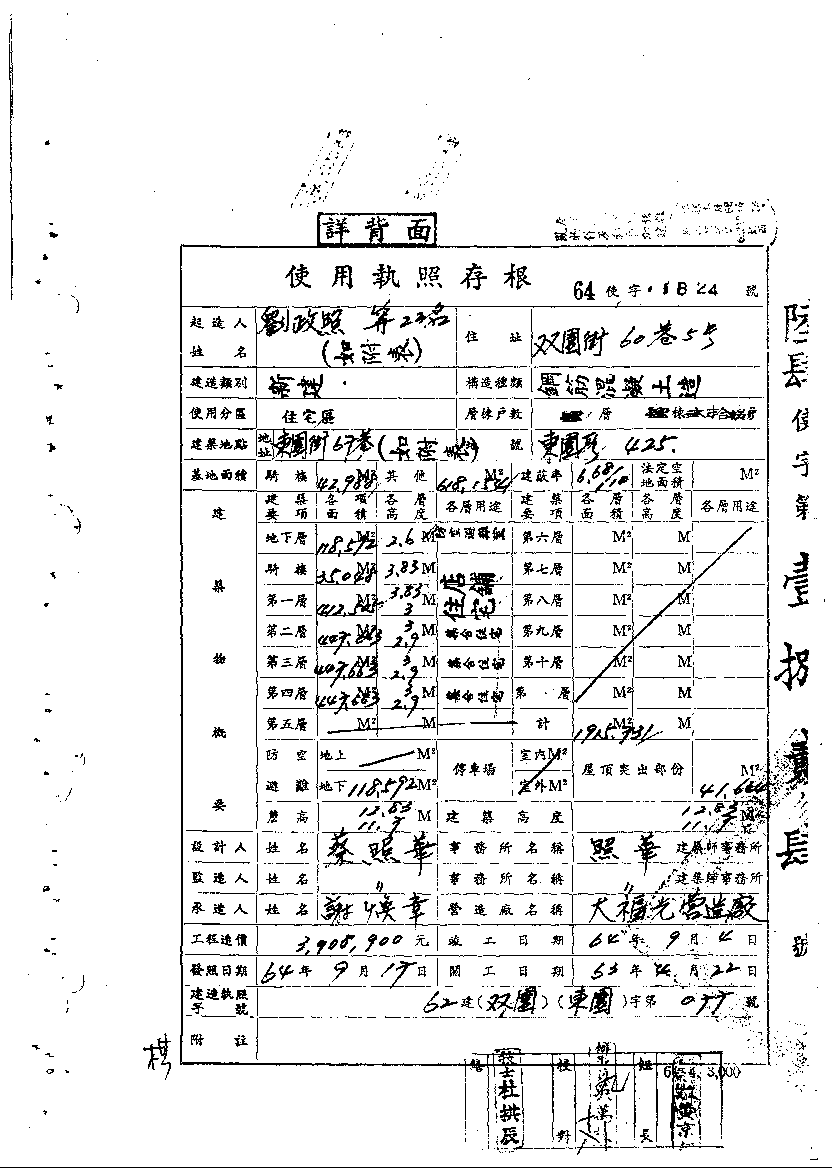 詳背面
使用執照存根
64 使字 1824 號
起造人姓名 劉政照 等22名 (如附表) 住址 双園街60巷5号
建造類別 新建 構造種類 鋼筋混凝土造
使用分區 住宅區 層棟戶數 層 棟
建築地點 地址 東園街67巷 (如附表) 號 東園段 425.
基地面積 騎樓 42.988 M² 其他 618.154 M² 建蔽率 6.68/10 法定空地面積 M²
建築物概要 建築要項 各項面積 各層高度 各層用途 建築要項 各層面積 各層高度 各層用途
地下層 118.592 M² 2.6 M 第六層 M² M
騎樓 35.048 M² 3.83 M 店舖住宅 第七層 M² M
第一層 M² 3.83 3 M 第八層 M² M
第二層 447.663 M² 3 2.9 M 集合住宅 第九層 M² M
第三層 447.663 M² 3 2.9 M 集合住宅 第十層 M² M
第四層 447.663 M² 3 2.9 M 集合住宅 第 層 M² M
第五層 M² M 計 1915.731 M² M
防空避難 地上 M² 停車場 室內 M² 屋頂突出部份 M²
地下 118.592 M² 室外 M²
簷高 12.83 11.9 M 建築高度 12.83 11.9 M
設計人 姓名 蔡照華 事務所名稱 照華 建築師事務所
監造人 姓名 〃 事務所名稱 〃 建築師事務所
承造人 姓名 謝煥章 營造廠名稱 大福光營造廠
工程造價 3,908,900 元 竣工日期 64年9月4日
發照日期 64年9月17日 開工日期 63年4月22日
建造執照字號 62建(双園)(東園)字第077號
附註
棋
64.4. 3,000
繕 技士杜拱辰 校對 組長
陸肆使字第壹捌貳肆號